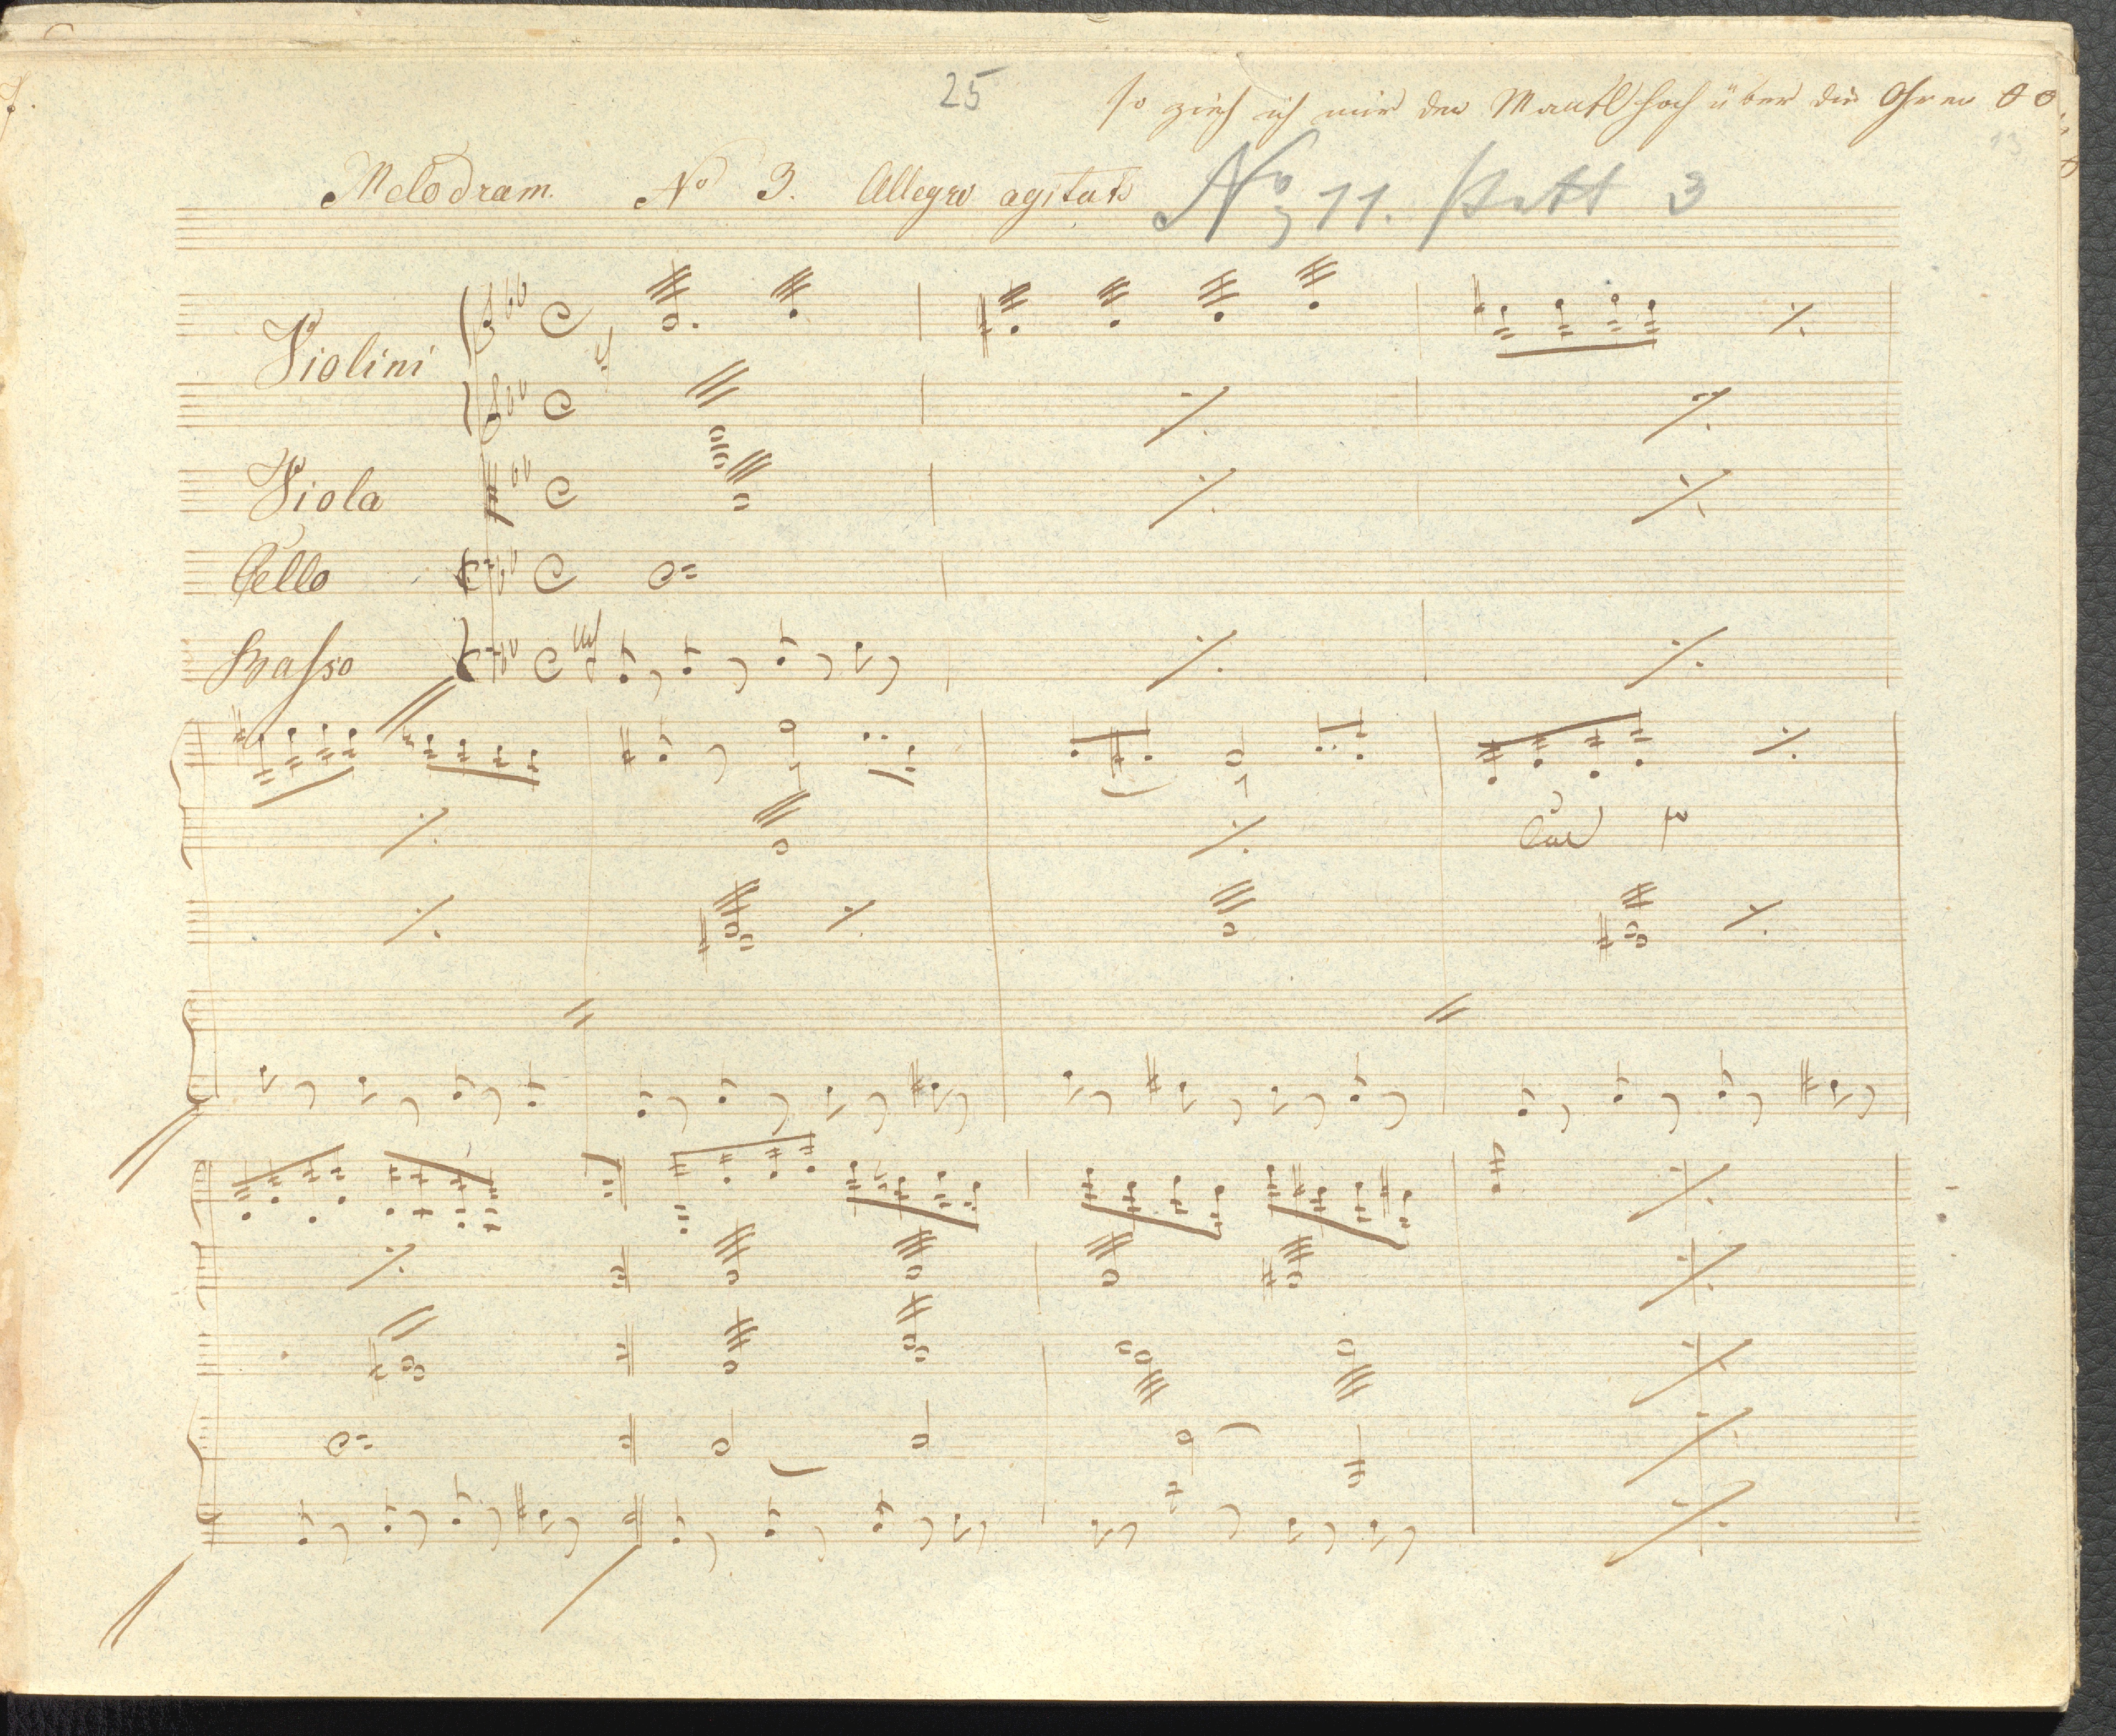 25
so zieh ich mir den Mantl hoch über die Ohren
Melodram. No 3. Allegro agitato No 11. statt 3
Violini
Viola
Cello
Basso
Col